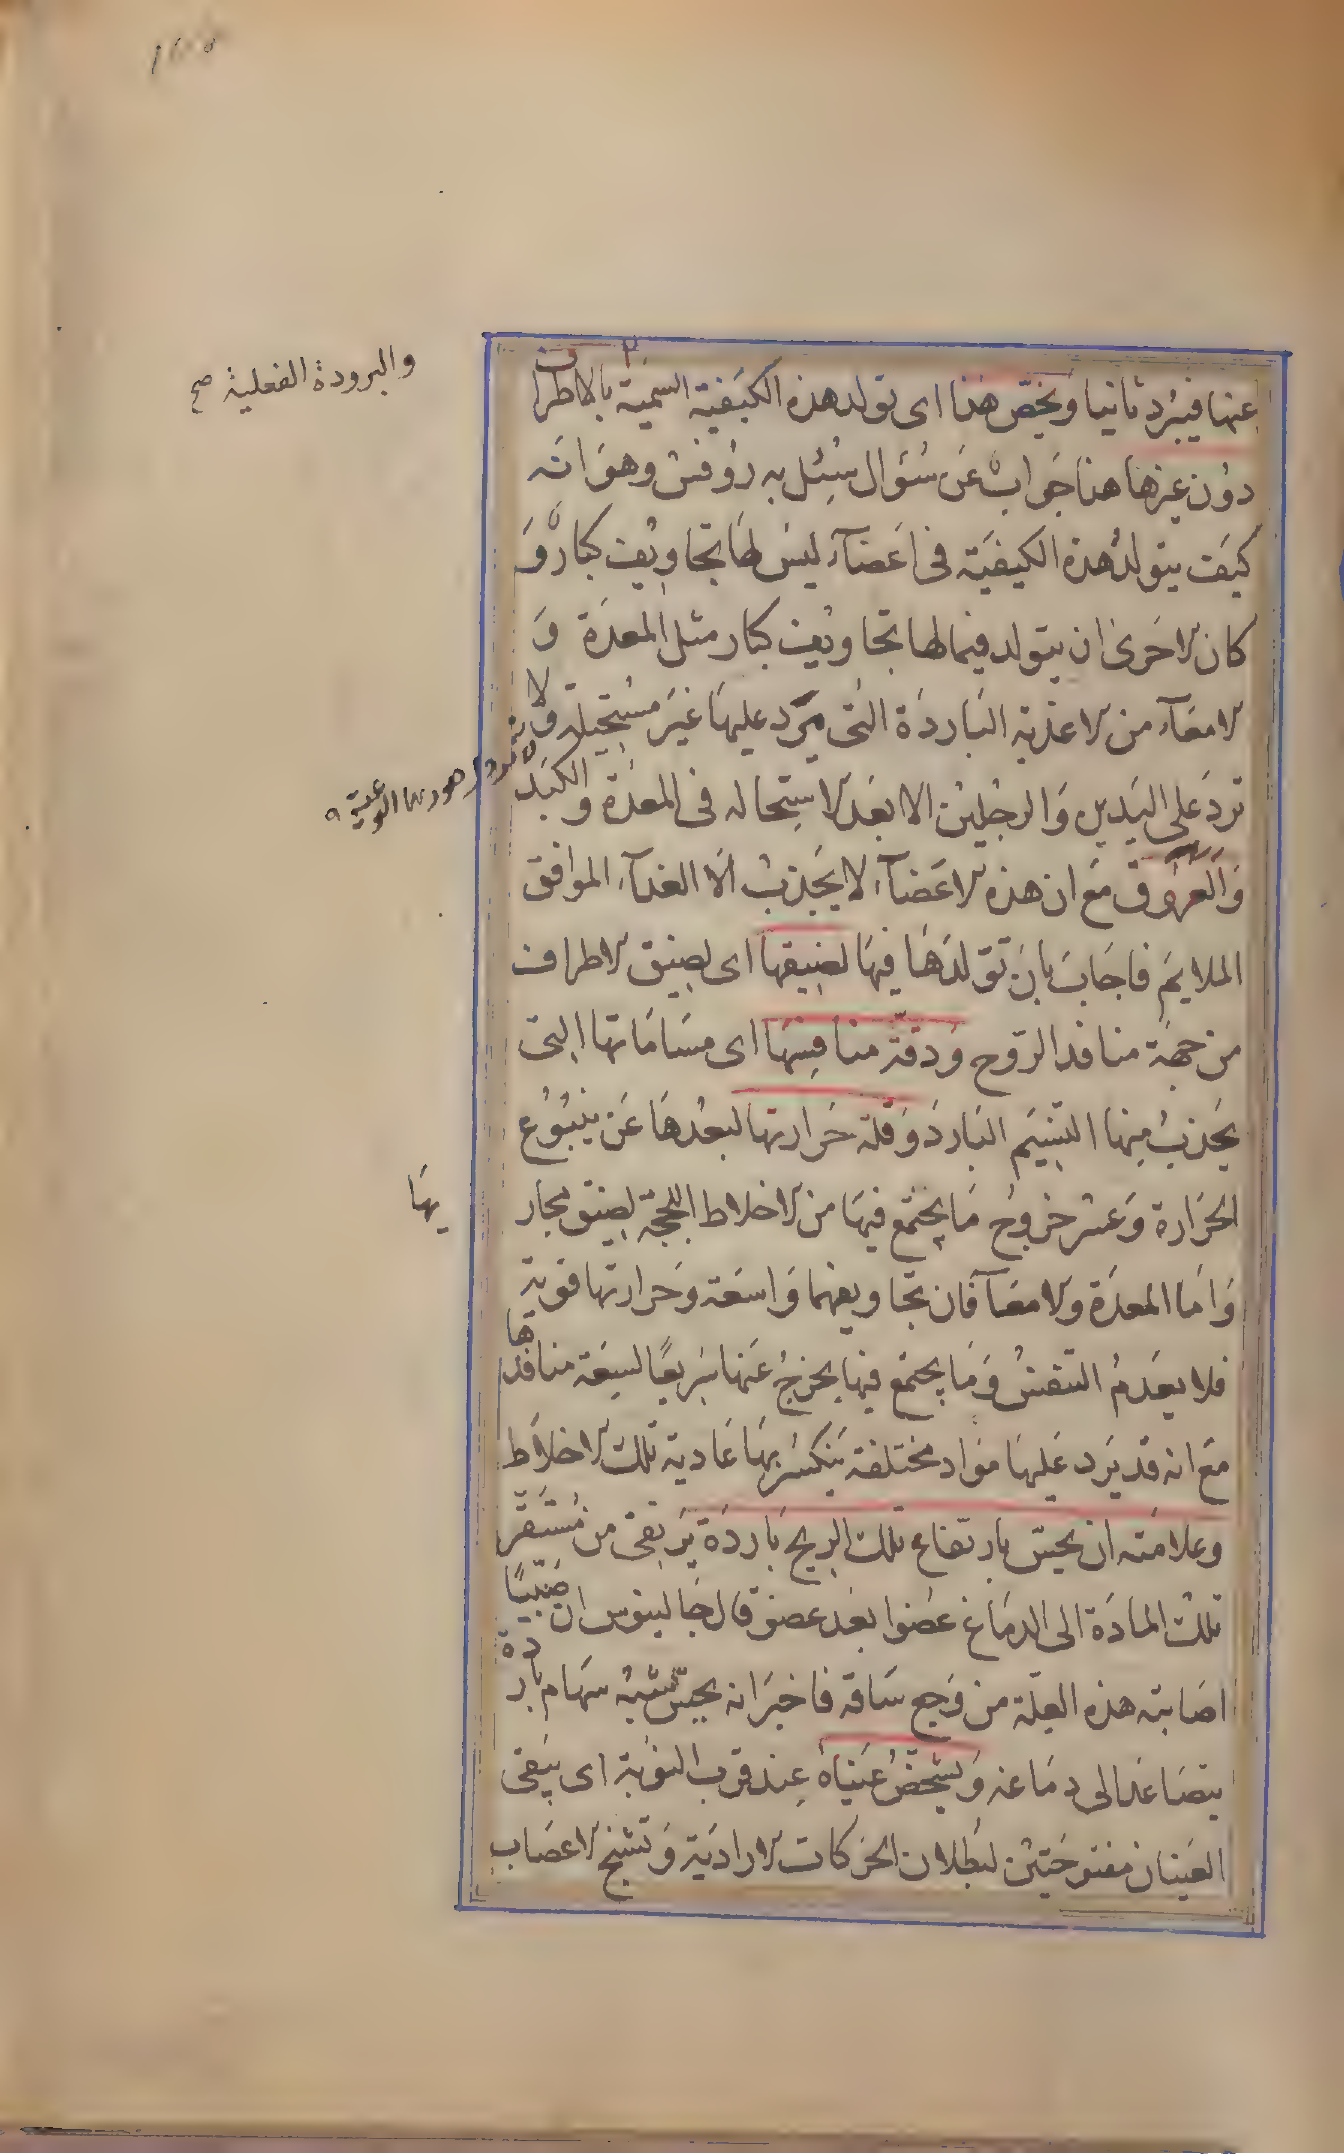 والبرودة الفعلية صح
عنها فيبرد ثانيا ويختص هذا اى تولد هذه الكيفية السمية بالاطراف
دون غيرها هنا جواب عن سؤال سئل به روفس وهو انه
كيف يتولد هذه الكيفية فى اعضآء ليس لها تجاويف كبار و
كان الاحرى ان يتولد فيما لها تجاويف كبار مثل المعدة و
الامعآء من الاغذية الباردة التى يرد عليها غير مستحيلة ولا
ترد على اليدين والرجلين الا بعد الاستحالة فى المعدة والكبد
والعروق مع ان هذه الاعضآء لا يجذب الا الغذآء الموافق
الملايم فاجاب بان تولدها فيها لضيقها اى لضيق الاطراف
من جهة منافذ الروح ودقة منافسها اى مساماتها التى
يجذب منها النسيم البارد وقلة حرارتها لبعدها عن ينبوع
الحرارة وعسر خروج ما يجتمع فيها من الاخلاط اللحجة لضيق مجار
يها
واما المعدة والامعآ فان تجاويفهما واسعة وحرارتها قوية
فلا يعدم التنفس وما يجتمع فيها يخرج عنها سريعا لسعة منافذها
مع انه قد يرد عليها مواد مختلفة ينكسر بها عادية تلك الاخلاط
وعلامته ان يحس بارتفاع تلك الريح باردة يرتقى من مستقر
تلك المادة الى الدماغ عضوا بعد عضو قال جالينوس ان صبيا
اصابته هذه العلة من وجع ساقه فاخبر انه يحس شبه سهام باردة
يتصاعد الى دماغه ويشخص عيناه عند قرب النوبة اى يبقى
العينان مفتوحتين لبطلان الحركات الارادية وتشنج الاعصاب